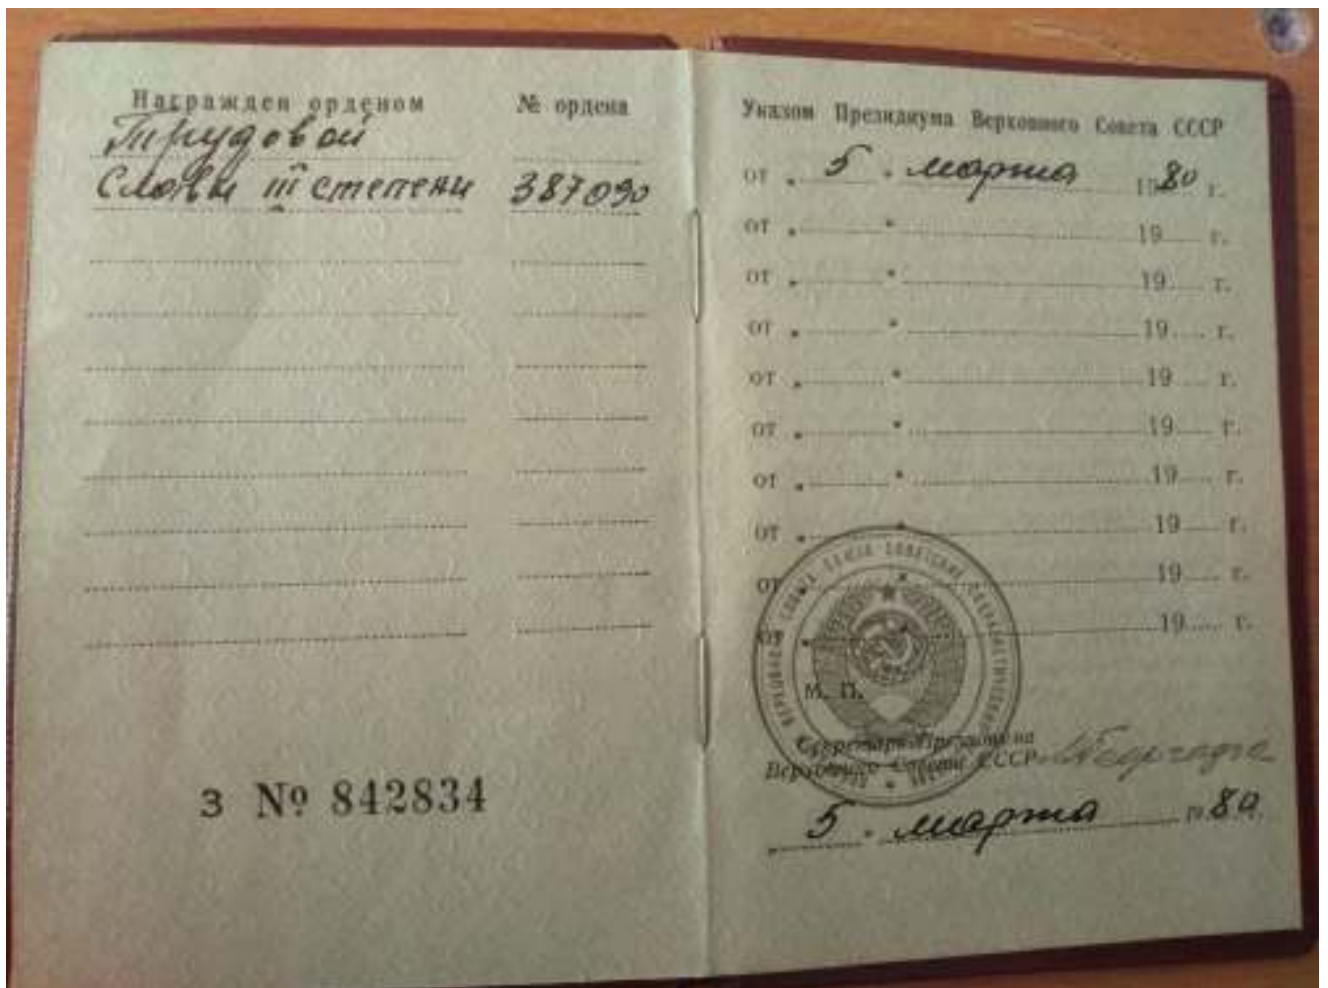 Награжден орденом
№ ордена
Трудовой
Славы III степени
387090
З № 842834
Указом Президиума Верховного Совета СССР
от „ 5 “ марта 1980 г.
от „ “ 19 г.
от „ “ 19 г.
от „ “ 19 г.
от „ “ 19 г.
от „ “ 19 г.
от „ “ 19 г.
от „ “ 19 г.
от „ “ 19 г.
от „ “ 19 г.
М. П.
Секретарь Президиума
Верховного Совета СССР
„ 5 “ марта 1980 г.